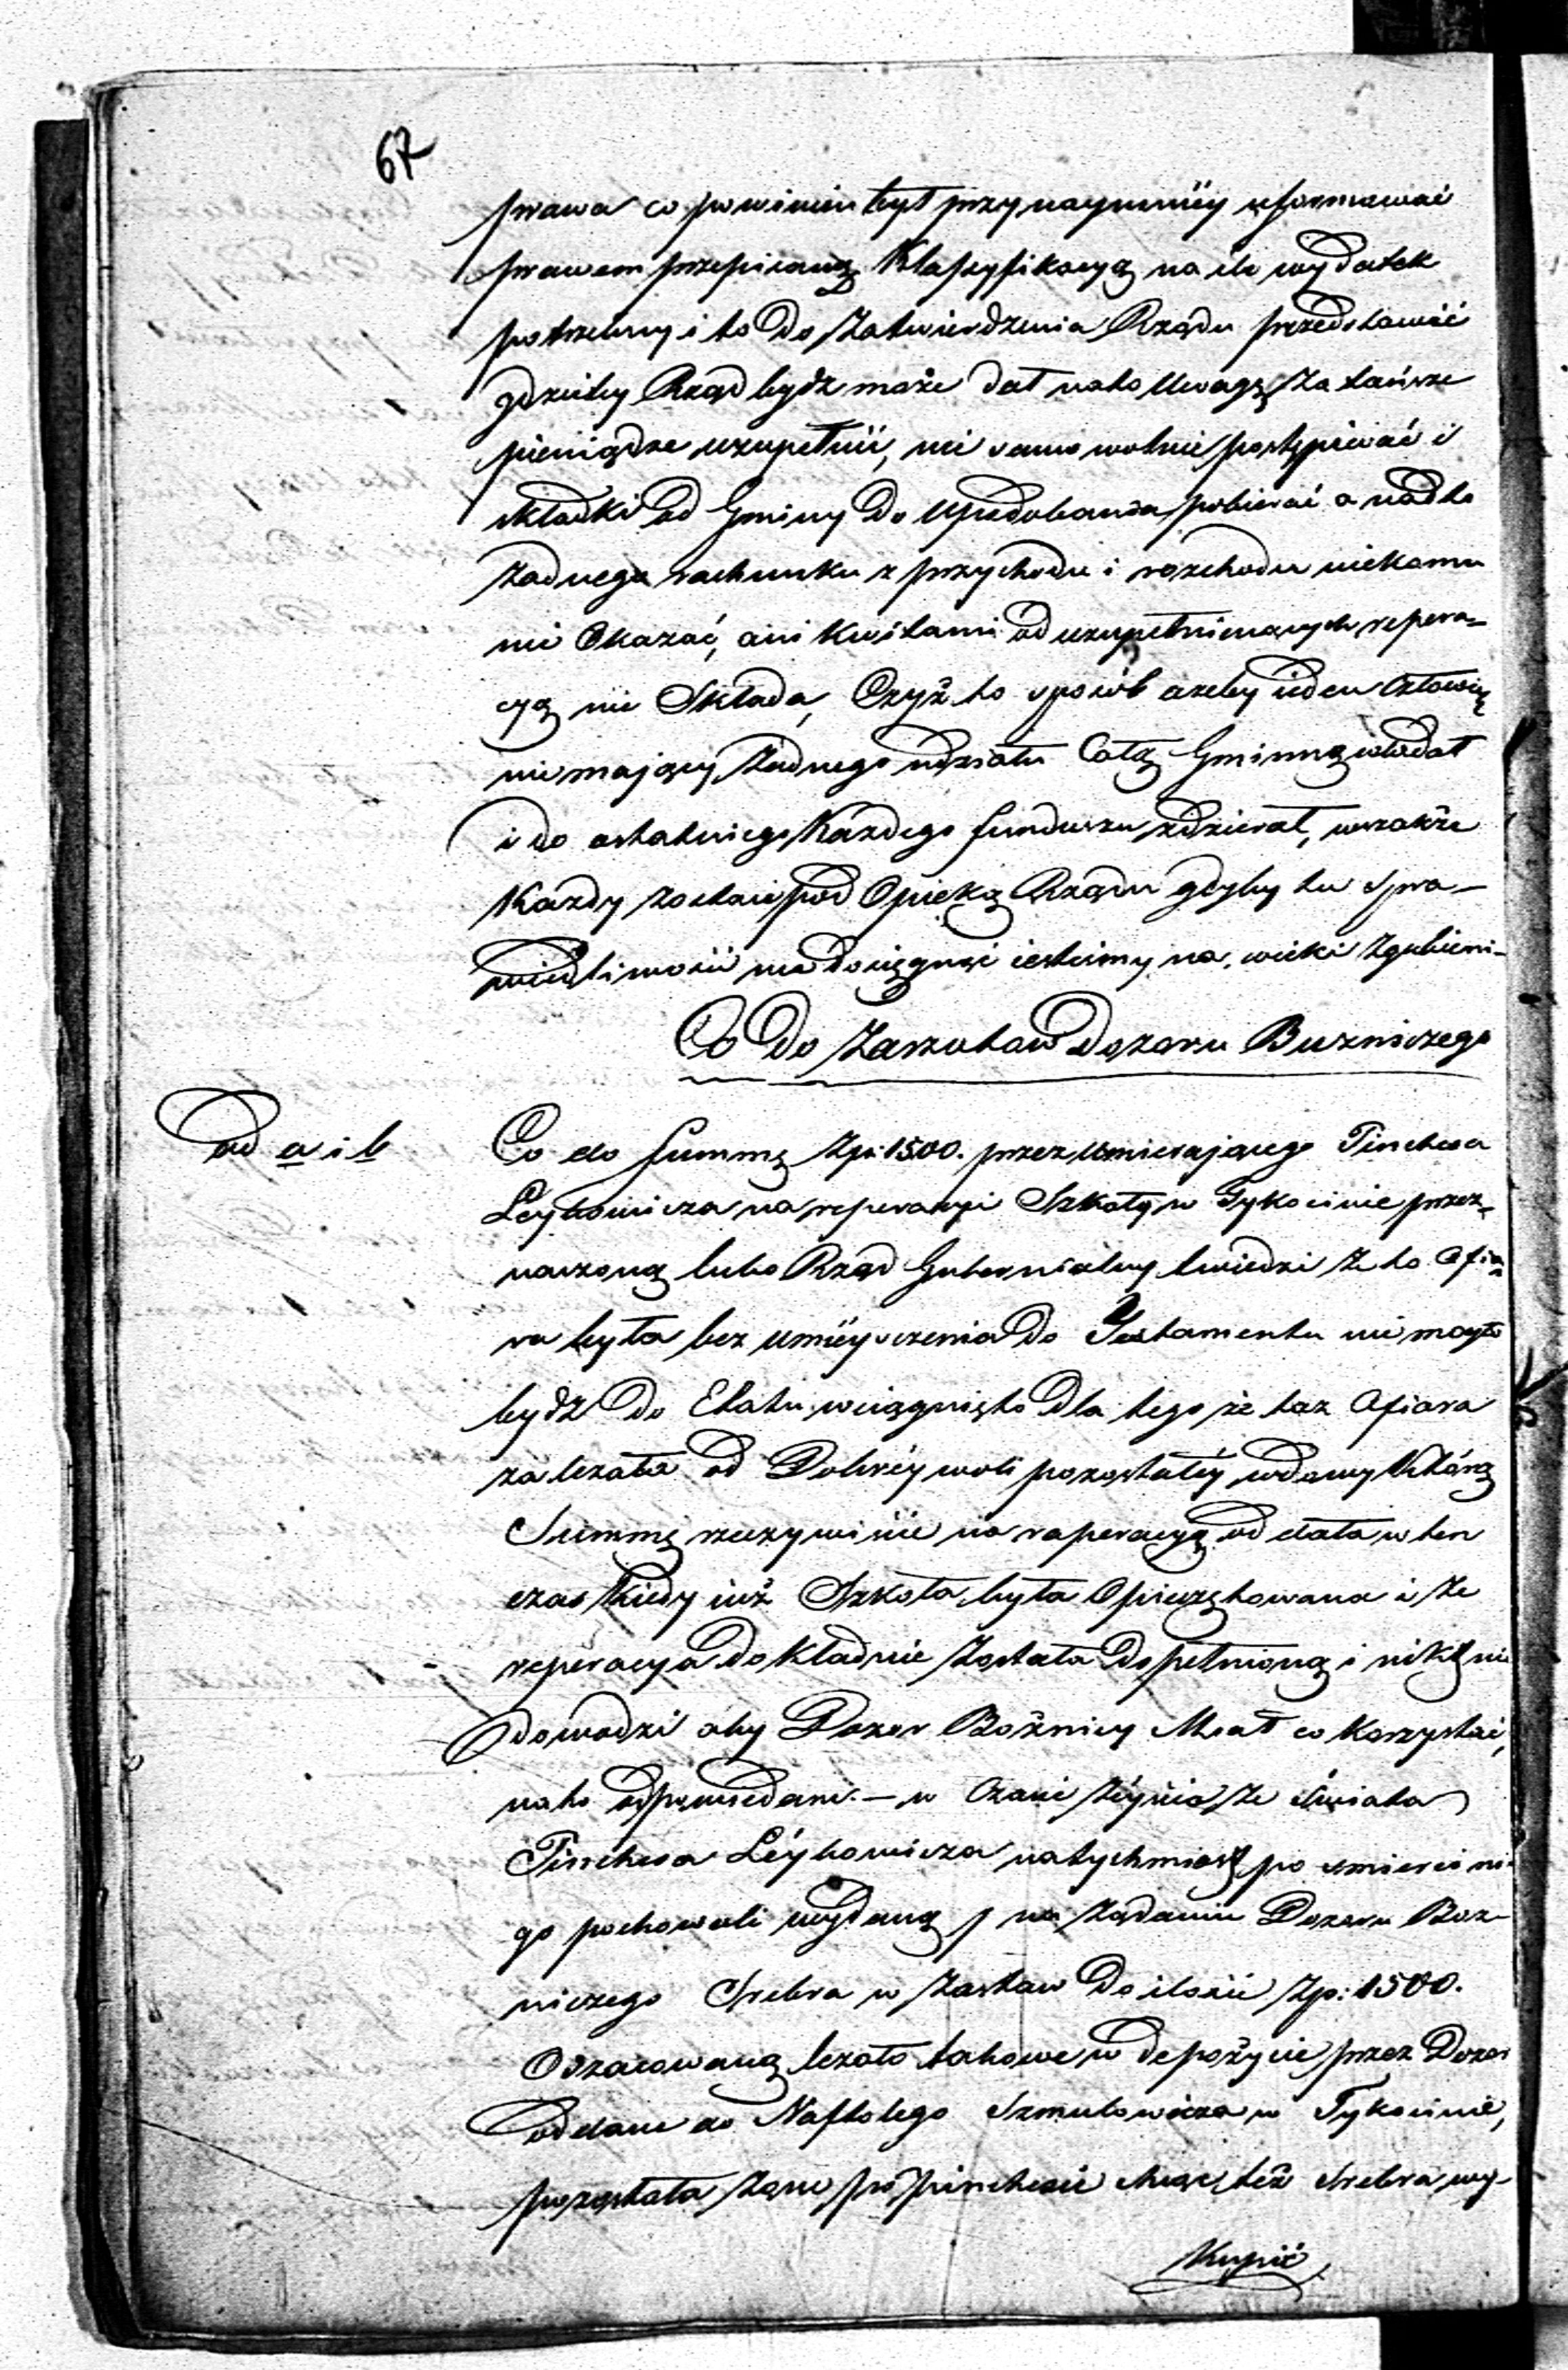 67
prawa co powinien był przynaymniéy uformować
prawem przepisaną Klassyfikacyą na ile wydatek
potrzebny i to do Zatwierdzenia Rządu przedstawić
gdzieby Rząd bydź może dał na to Uwagę za tańsze
pieniądze uzupełnić, nie samowolnie postępować i
składki od Gminy do Upodobania pobierać a nadto
żadnego rachunku z przychodu i rozchodu niekomu
nie Okazać, ani Kwitami od uzupełnionych repera=
cyą nie Składa, Czyż to sposób azeby ieden Człowiek
niemający żadnego udziału Całą Gminną władał
i do ostatniego Każdego funduszu zdzierał, wszakże
Kazdy zostaie pod Opieką Rządu gdyby tu Spra-
wiedliwości nie dosięgnąć iesteśmy na wieki zgubieni-
Co Do Zarzutow Dozoru Buzniczego
ad a i b
Co do Summę Zp: 1500. przez Umierającego Pinchesa
Leybowicza na reperacyi Szkoły w Tykocinie przez=
naczoną lubo Rząd Gubernialny twiedzi że to Ofia
ra była bez umieysczenia do Testamentu nie mogło
bydź do Etatu wciągnięto dla tego że taz Ofiara
zalezała od Dobréy woli pozostałéy wdowy Którą
Summę rzeczywiście na raperacyą oddała w ten
czas Kiedy iuż Szkoła była Opieczętowana i że
reperacya dokładnie została dopełnioną i nikt nie
dowodzi aby Dozor Bożnicy Miał co Korzystać,
na to odpowiedam. – w Czasie zéyścia ze świata
Pinchesa Léybowicza natychmiast po smierci ni
go pochowali wydaną na Żądanie Dozoru Boz-
niczego Srebra w Zastaw do ilości Zp: 1500.
Oszacowaną lezało takowe w depozycie przez Dozor
oddane do Naftolego Szmulowicza w Tykocinie,
pozostała żona po Pinchesie chcąc też Srebra wy-
Kupić